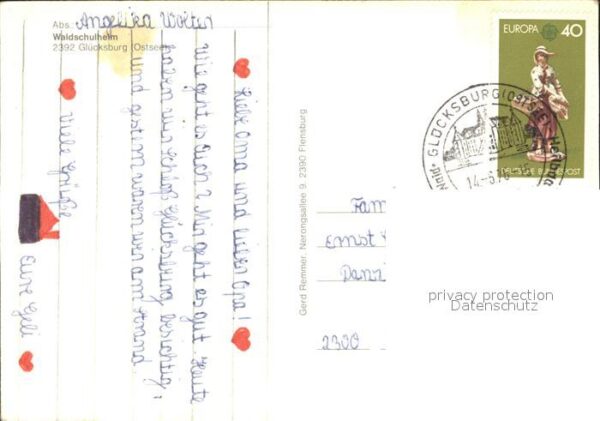 Abs. Angelika Wolter
Waldschulheim
2392 Glücksburg (Ostsee)
Liebe Oma und lieber Opa!
Wie geht es Euch? Mir geht es gut. Heute
haben wir Schloß Glücksburg besichtigt,
und gestern waren wir am Strand.
Viele Grüße
Eure Geli
Gerd Remmer, Nerongsallee 9, 2390 Flensburg
EUROPA 40
DEUTSCHE BUNDESPOST
GLÜCKSBURG (OSTSEE)
14.-6.76
Fam
Ernst
Danzi
2300
privacy protection
Datenschutz